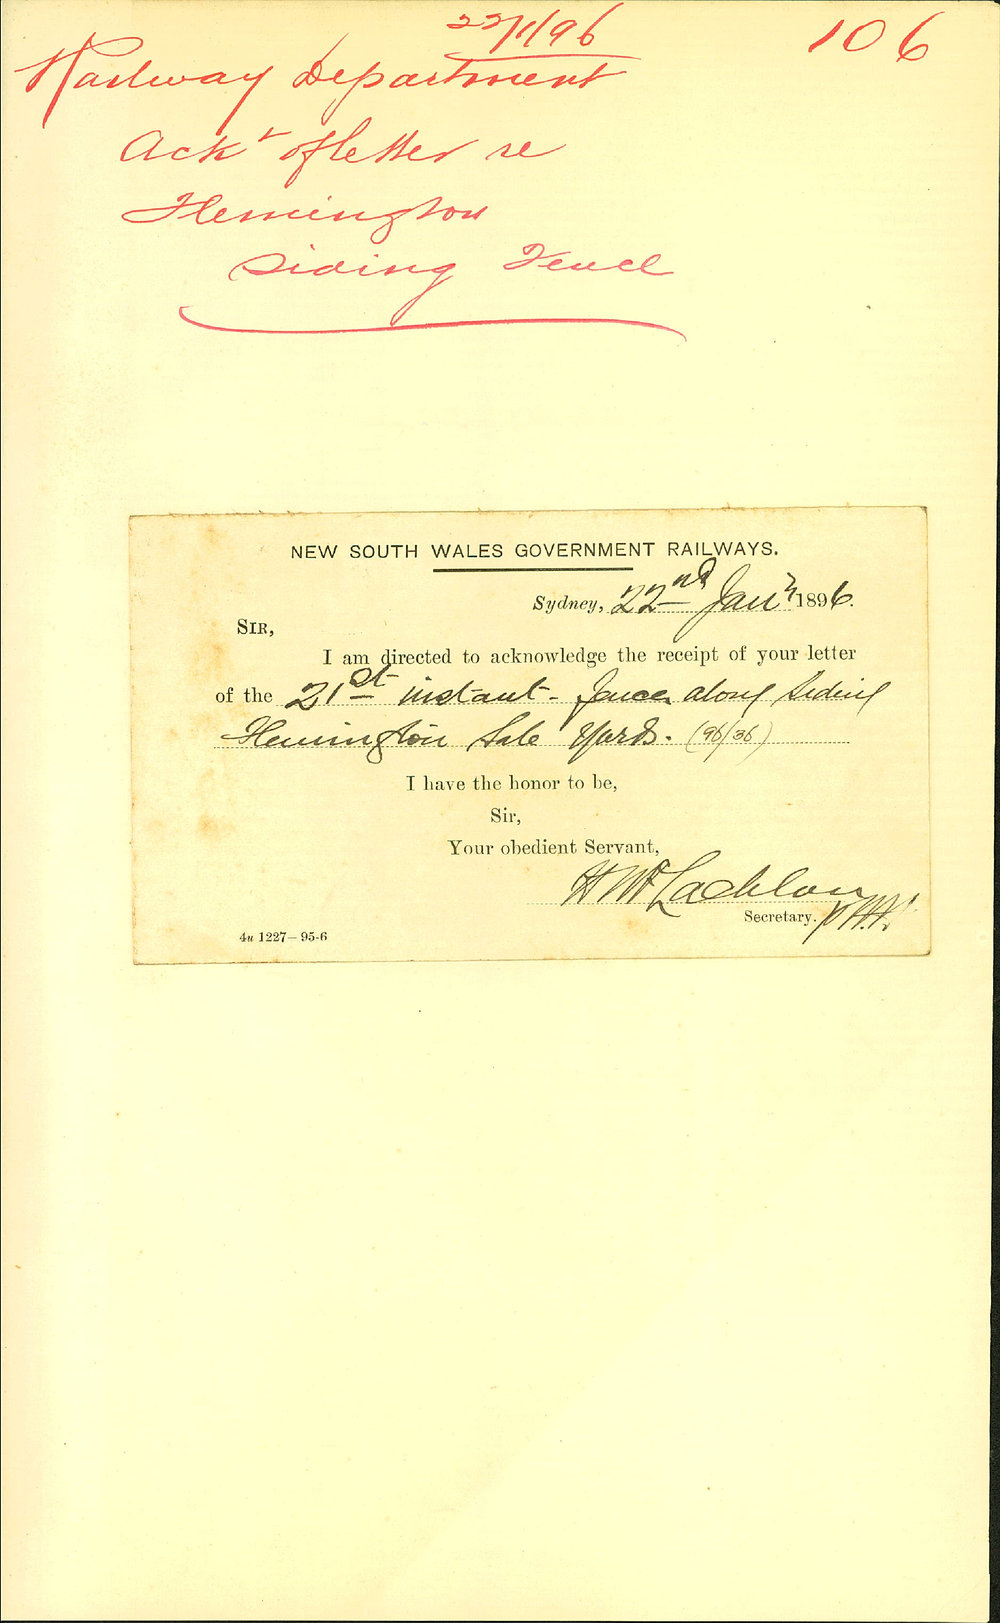 22/1/96
106
Railway Department
Ackt of letter re
Flemington
Siding Fence
NEW SOUTH WALES GOVERNMENT RAILWAYS.
Sydney, 22nd Jany 1896.
SIR,
I am directed to acknowledge the receipt of your letter
of the 21st instant - fence along Siding
Flemington Sale Yards. (96/36)
I have the honor to be,
Sir,
Your obedient Servant,
H McLachlan
Secretary.
4u 1227—95-6